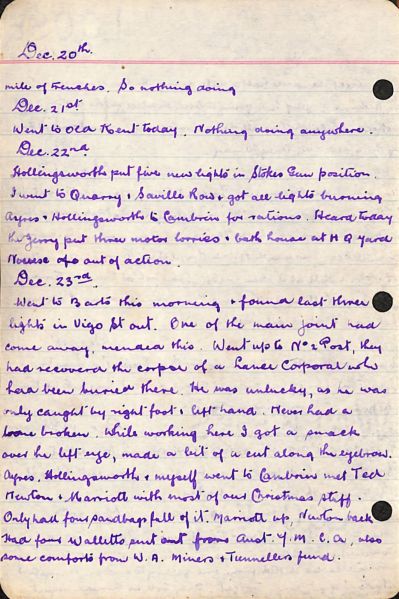 Dec. 20th.
mile of trenches. So nothing doing
Dec. 21st
Went to Old Kent today. Nothing doing anywhere.
Dec. 22nd
Hollingsworth put five new lights in Stokes Gun position.
I went to Quarry & Saville Row & got all lights burning
Ayres & Hollingsworth to Cambrin for rations. Heard today
the Jerry put three motor lorries & bath house at H Q yard
out of action.
Dec. 23rd.
Went to Barts this morning & found last three
lights in Vigo St out. One of the main joint had
come away, mended this. Went up to No 2 Post, they
had recoverd the corpse of a Lance Corporal who
had been buried there. He was unlucky, as he was
only caught by right foot & left hand. Never had a
bone broken. While working here I got a smack
over the left eye, made a bit of a cut along the eyebrow.
Ayres, Hollingsworth & myself went to Cambrin met Ted
Newton & Marriott with most of our Christmas stuff.
Only had four sandbags full of it. Marriott up, Newton back
Had four Walletts sent out from Aust. Y. M. C. A, also
some comforts from W. A. Miners & Tunnellers fund.